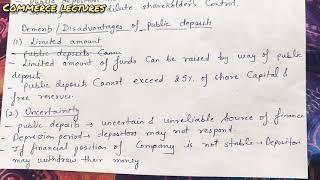 Public deposit
dilute shareholder's Control.
COMMERCE LECTURES
Demerits/Disadvantages of public deposits
(1) Limited amount
- Public deposits Cann
- Limited amount of funds Can be raised by way of public
deposit.
- public deposits Cannot exceed 25% of share Capital &
free reserves.
(2) Uncertainty
- public deposits → uncertain & unreliable source of finance
- Depression period → depositors may not respond.
- If financial position of Company is not stable → Depositors
may withdraw their money.